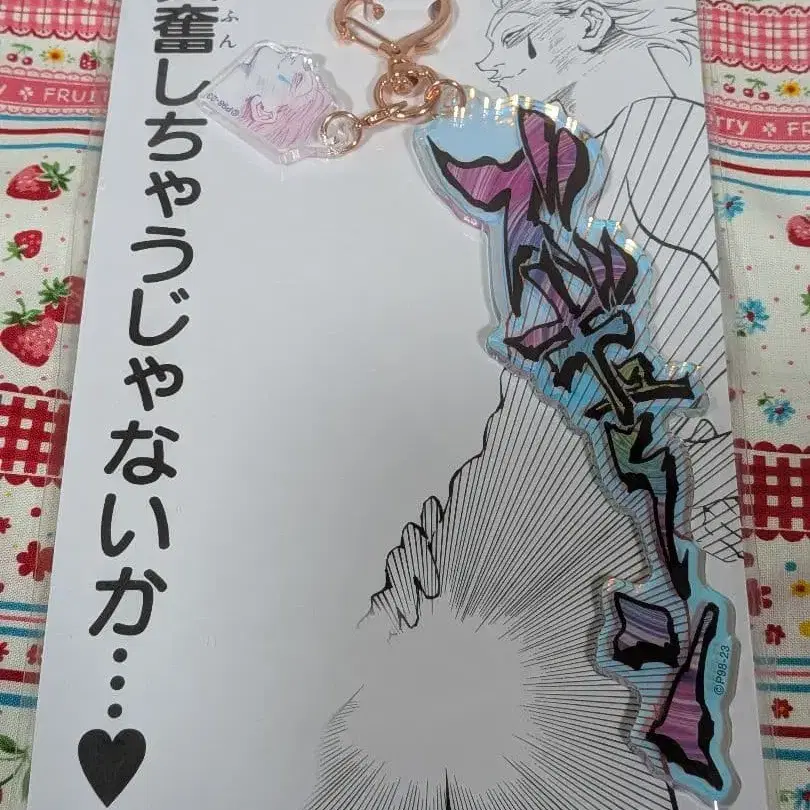 奮しちゃうじゃないか…♥
ふん
©P98-23
©P98-23
FRUI
rry
FRUI